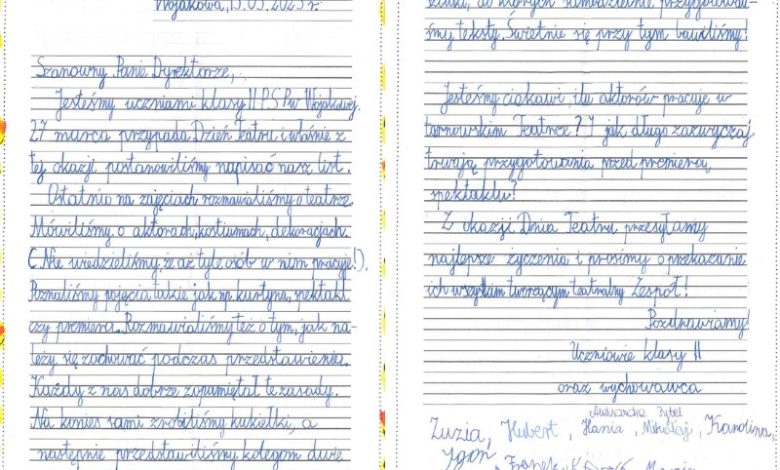 Wojakowa, 15.03.2023 r.
Szanowny Panie Dyrektorze,
Jesteśmy uczniami klasy II P.S.P. w Wojakowej.
27 marca przypada Dzień Teatru i właśnie z
tej okazji postanowiliśmy napisać nasz list.
Ostatnio na zajęciach rozmawialiśmy o teatrze.
Mówiliśmy o aktorach, kostiumach, dekoracjach.
(Nie wiedzieliśmy, że aż tyle osób w nim pracuje!).
Poznaliśmy pojęcia takie jak np. kurtyna, spektakl
czy premiera. Rozmawialiśmy też o tym, jak na-
leży się zachować podczas przedstawienia.
Każdy z nas dobrze zapamiętał te zasady.
Na koniec sami zrobiliśmy kukiełki, a
następnie przedstawiliśmy kolegom dwie
sztuki, do których samodzielnie przygotowali-
śmy teksty. Świetnie się przy tym bawiliśmy!
Jesteśmy ciekawi, ilu aktorów pracuje w
tarnowskim Teatrze? I jak długo zazwyczaj
trwają przygotowania przed premierą
spektaklu?
Z okazji Dnia Teatru przesyłamy
najlepsze życzenia i prosimy o przekazanie
ich wszystkim tworzącym teatralny Zespół!
Pozdrawiamy!
Uczniowie klasy II
oraz wychowawca
Aleksandra
Zuzia, Hubert, Hania, Mikołaj, Karolina,
Igor
Franek